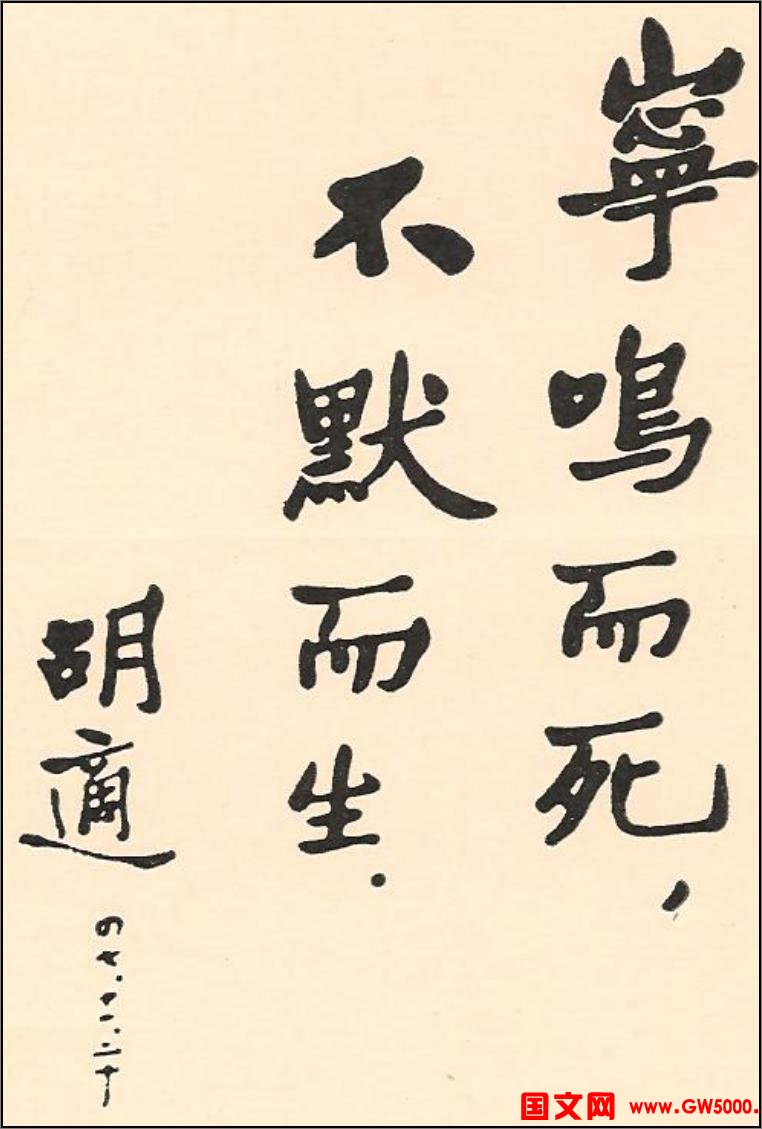 寧鳴而死，
不默而生.
胡適
四七.十二.二十
国文网 www.GW5000.